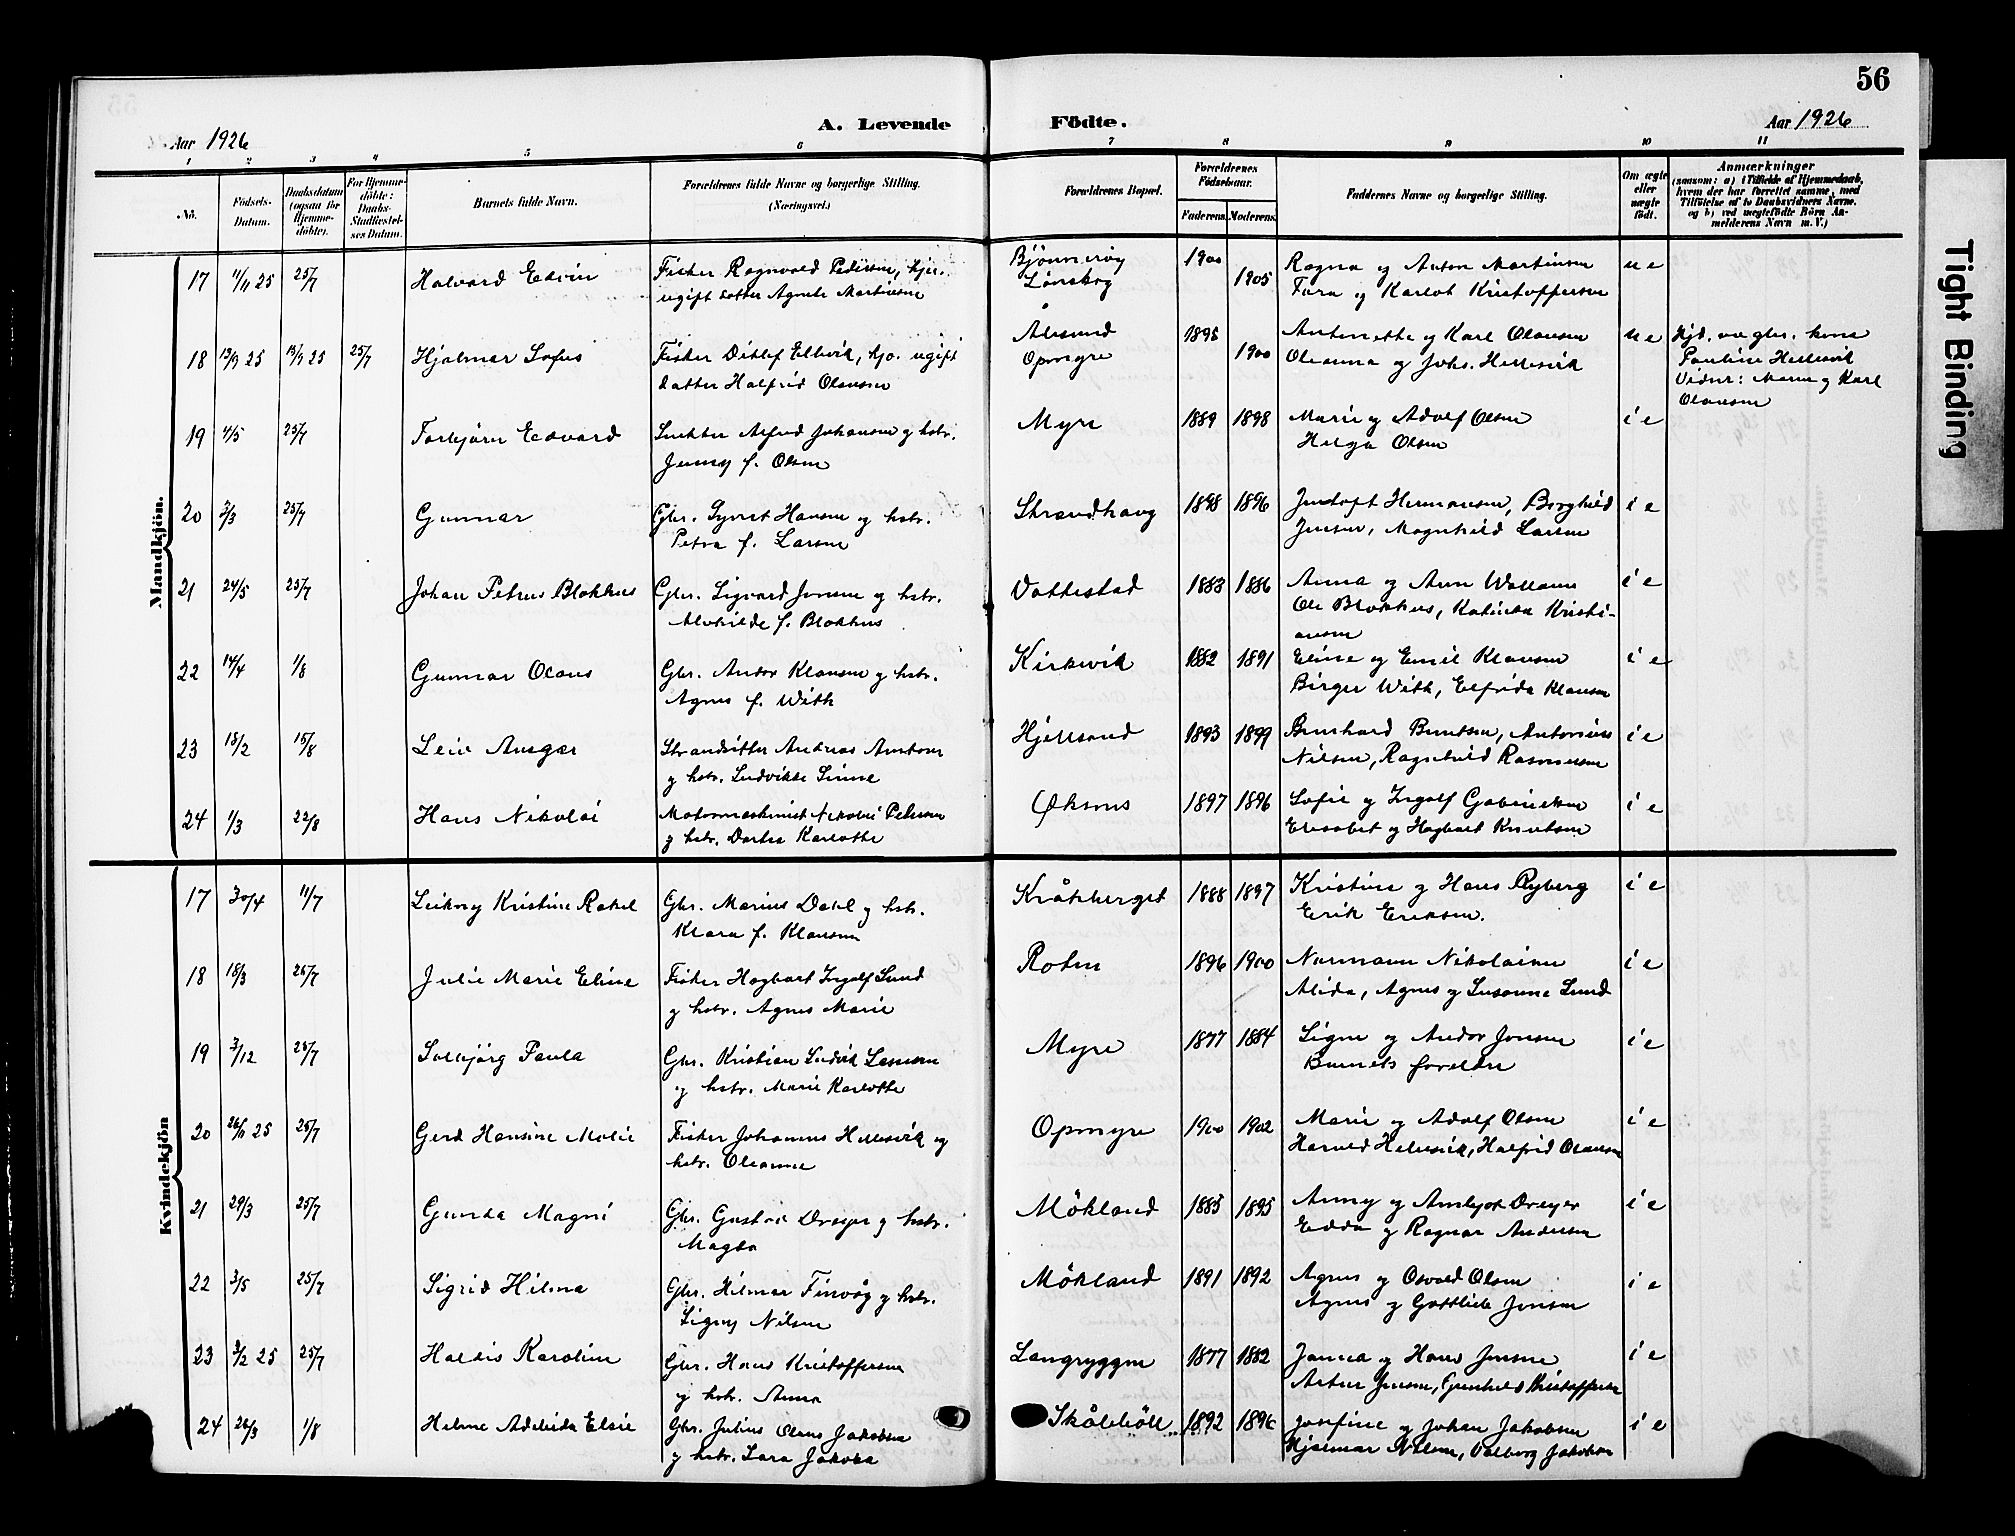 56
A. Levende Födte.
Aar 1926
Aar 1926
1 2 3 4 5 6 7 8 9 10 11
No.
Födsels-Datum.
Daabsdatum (ogsaa for Hjemme-döbte).
For Hjemme-döbte: Daabs-Stadfæstel-ses Datum.
Barnets fulde Navn.
Forældrenes fulde Navne og borgerlige Stilling. (Næringsvei.)
Forældrenes Bopæl.
Forældrenes Födselsaar.
Faderens. Moderens.
Faddernes Navne og borgerlige Stilling.
Om ægte eller uægte födt.
Anmærkninger
(saasom: a) i Tilfælde af Hjemmedaab, hvem der har forrettet samme, med Tilföielse af to Daabsvidners Navne, og b) ved uægtefödte Börn An-melderens Navn m. V.)
Mandkjön.
17 11/11 25 25/7 Halvard Edvin Fisker Ragnvald Pedersen, hjes. Bjönnerøy 1900 Ragna og Anton Martinsen u e
ugift datter Agnete Martinsen Lønskog 1905 Tora og Karlot Kristoffersen
18 13/9 25 13/9 25 25/7 Hjalmar Sofus Fisker Ditlef Ellevik, hjo. ugift Ålesund 1895 Antonette og Karl Olausen u e Hjd. av gbr. kona
datter Halfrid Olausen Opmyre 1900 Oleanna og Johs. Hellesvik Pauline Hellesvik
Vidner: Maren og Karl
Olausen
19 4/5 25/7 Torbjørn Edvard Snekker Alfred Johansen og hstr. Myre 1889 1898 Marie og Adolf Olsen i e
Jenny f. Olsen Helga Olsen
20 2/3 25/7 Gunnar Gbr. Syvert Hansen og hstr. Strandhaug 1898 1896 Jentoft Hermansen, Borghild i e
Petra f. Larsen Jensen, Magnhild Larsen
21 24/5 25/7 Johan Petrus Blokhus Gbr. Sigvard Jensen og hstr. Vottestad 1883 1886 Anna og Arne Wallann i e
Alvhilde f. Blokhus Ole Blokhus, Katinka Kristi-
ansen
22 14/4 1/8 Gunnar Olaus Gbr. Andor Klausen og hstr. Kirkevik 1882 1891 Eline og Emil Klausen i e
Agnes f. With Birger With, Elfrida Klausen
23 18/2 15/8 Leiv Ansgar Strandsitter Andreas Antonsen Hjellsand 1893 1899 Bernhard Berntsen, Antonius i e
og hstr. Ludvikke Sinne Nilsen, Ragnhild Rasmussen
24 1/3 22/8 Hans Nikolai Motormaskinist Nikolai Petersen Øksnes 1897 1896 Sofie og Ingolf Gabrielsen i e
og hstr. Dortea Karlotte Elisabet og Hagbart Knutsen
Kvindekjön
17 30/4 11/7 Leikny Kristine Rakel Gbr. Marius Dahl og hstr. Kråkberget 1888 1897 Kristine og Hans Ryberg i e
Klara f. Klausen Erik Eriksen.
18 18/3 25/7 Julie Marie Eline Fisker Hagbart Ingolf Lund Roten 1896 1900 Normann Nikolaisen i e
og hstr. Agnes Marie Alida, Agnes og Susanne Lund
19 3/12 25/7 Solbjørg Paula Gbr. Kristian Ludvik Larsen Myre 1877 1884 Signe og Andor Jensen i e
og hstr. Marie Karlotte Barnets foreldre
20 26/11 25 25/7 Gerd Hansine Malie Fisker Johannes Hellesvik og Opmyre 1900 1902 Marie og Adolf Olsen i e
hstr. Oleanne Harald Hellesvik, Halfrid Olausen
21 29/3 25/7 Gunda Magni Gbr. Gustav Dreyer og hstr. Mökland 1885 1895 Anny og Arnljot Dreyer i e
Magda Edda og Ragnar Andersen
22 3/5 25/7 Sigrid Hilma Gbr. Hilmar Finvåg og hstr. Mökland 1891 1892 Agnes og Osvald Olsen i e
Signy Nilsen Agnes og Gottlieb Jensen
23 3/2 25 25/7 Haldis Karoline Gbr. Hans Kristoffersen Langryggen 1877 1882 Janna og Hans Jensen i e
og hstr. Anna Artur Jensen, Gunhild Kristoffersen
24 26/3 1/8 Helene Adelinde Elsie Gbr. Julius Olaus Jakobsen Skåleböll 1892 1896 Josefine og Johan Jakobsen i e
og hstr. Lara Jakoba Hjalmar Nilsen, Valborg Jakobsen
Tight Binding